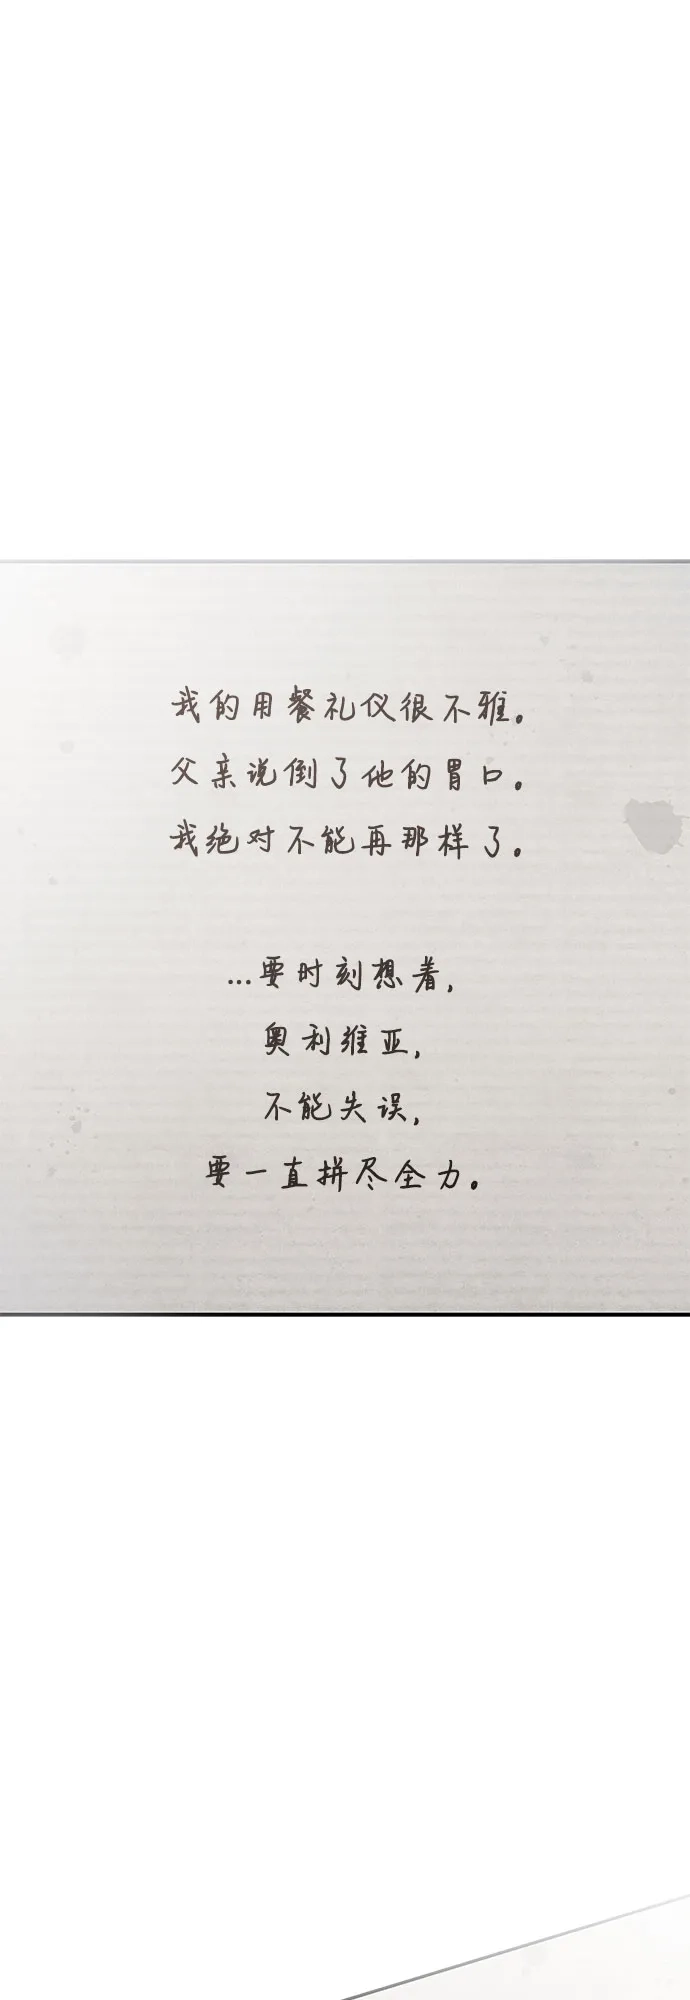 我的用餐礼仪很不雅。
父亲说倒了他的胃口。
我绝对不能再那样了。
...要时刻想着,
奥利维亚,
不能失误,
要一直拼尽全力。